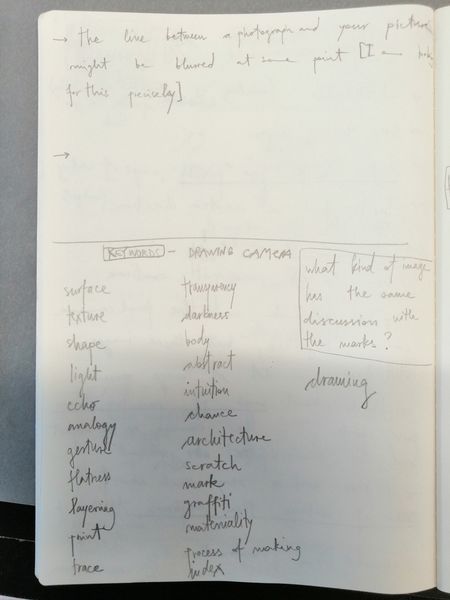 → the line between a photograph and your picture
might be blurred at some point [I am
for this precisely]
→
KEYWORDS - DRAWING CAMERA
surface
texture
shape
light
echo
analogy
gesture
flatness
layering
point
trace
transparency
darkness
body
abstract
intuition
chance
architecture
scratch
mark
graffiti
materiality
process of making
index
what kind of image
has the same
discussion with
the marks?
drawing